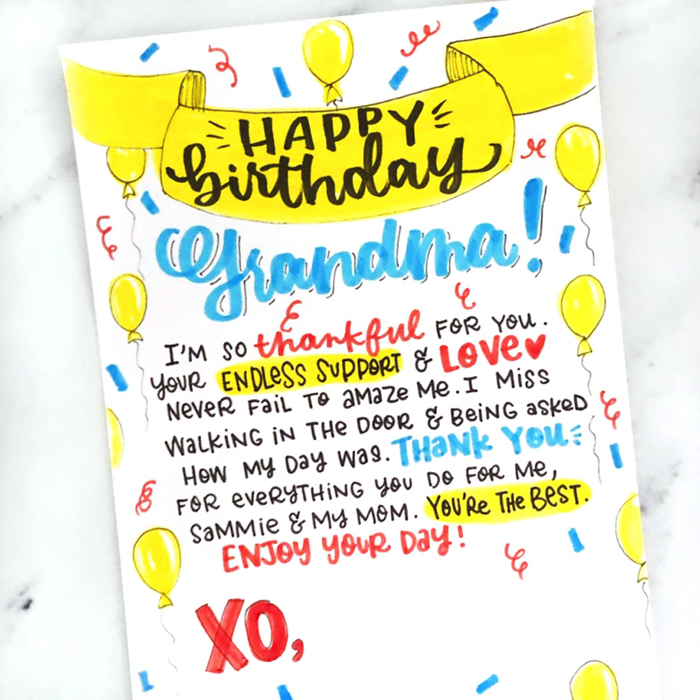 HAPPY
birthday
Grandma!
I'M SO thankful FOR YOU.
YOUR ENDLESS SUPPORT & LOVE♥
NEVER FAIL TO AMAZE ME. I MISS
WALKING IN THE DOOR & BEING ASKED
HOW MY DAY WAS. THANK YOU
FOR EVERYTHING YOU DO FOR ME,
SAMMIE & MY MOM. YOU'RE THE BEST.
ENJOY YOUR DAY!
XO,